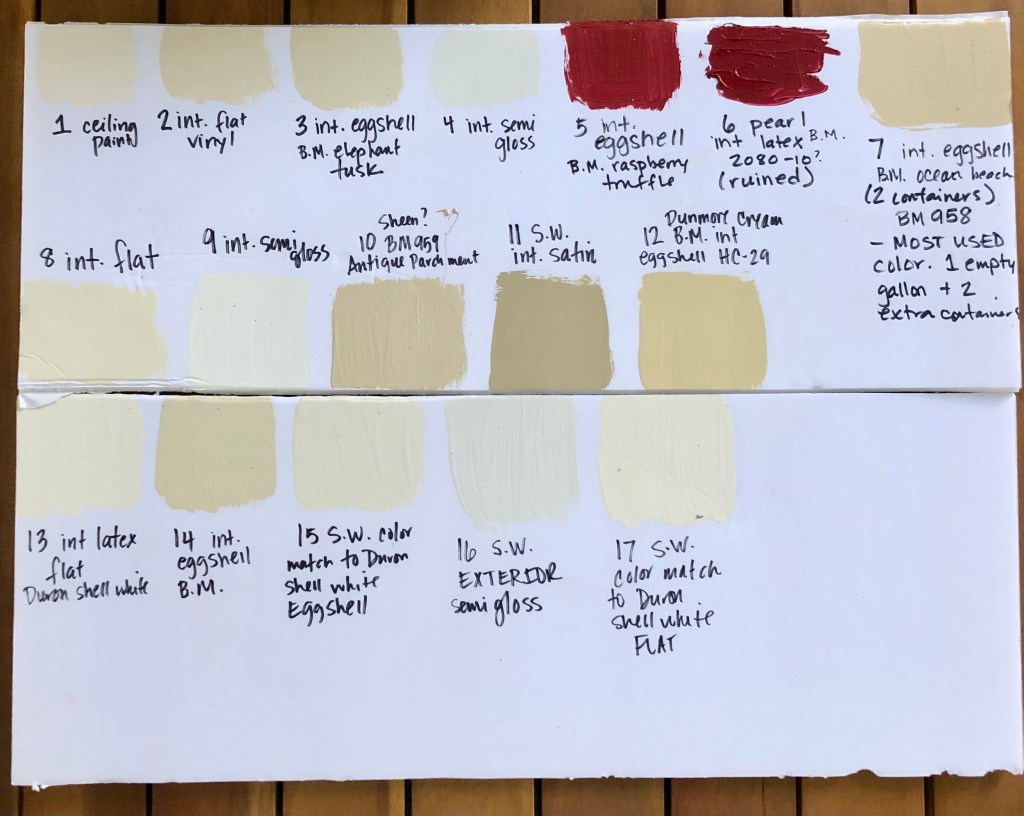 1 ceiling
paint
2 int. flat
vinyl
3 int. eggshell
B.M. elephant
tusk
4 int. semi
gloss
5 int.
eggshell
B.M. raspberry
truffle
6 pearl
int latex B.M.
2080-10?
(ruined)
7 int. eggshell
B.M. ocean beach
(2 containers)
BM 958
- MOST USED
color. 1 empty
gallon + 2
extra containers
8 int. flat
9 int. semi
gloss
Sheen?
10 BM959
Antique Parchment
11 S.W.
int. satin
Dunmore Cream
12 B.M. int
eggshell HC-29
13 int latex
flat
Duron shell white
14 int.
eggshell
B.M.
15 S.W. color
match to Duron
shell white
Eggshell
16 S.W.
EXTERIOR
semi gloss
17 S.W.
color match
to Duron
shell white
FLAT